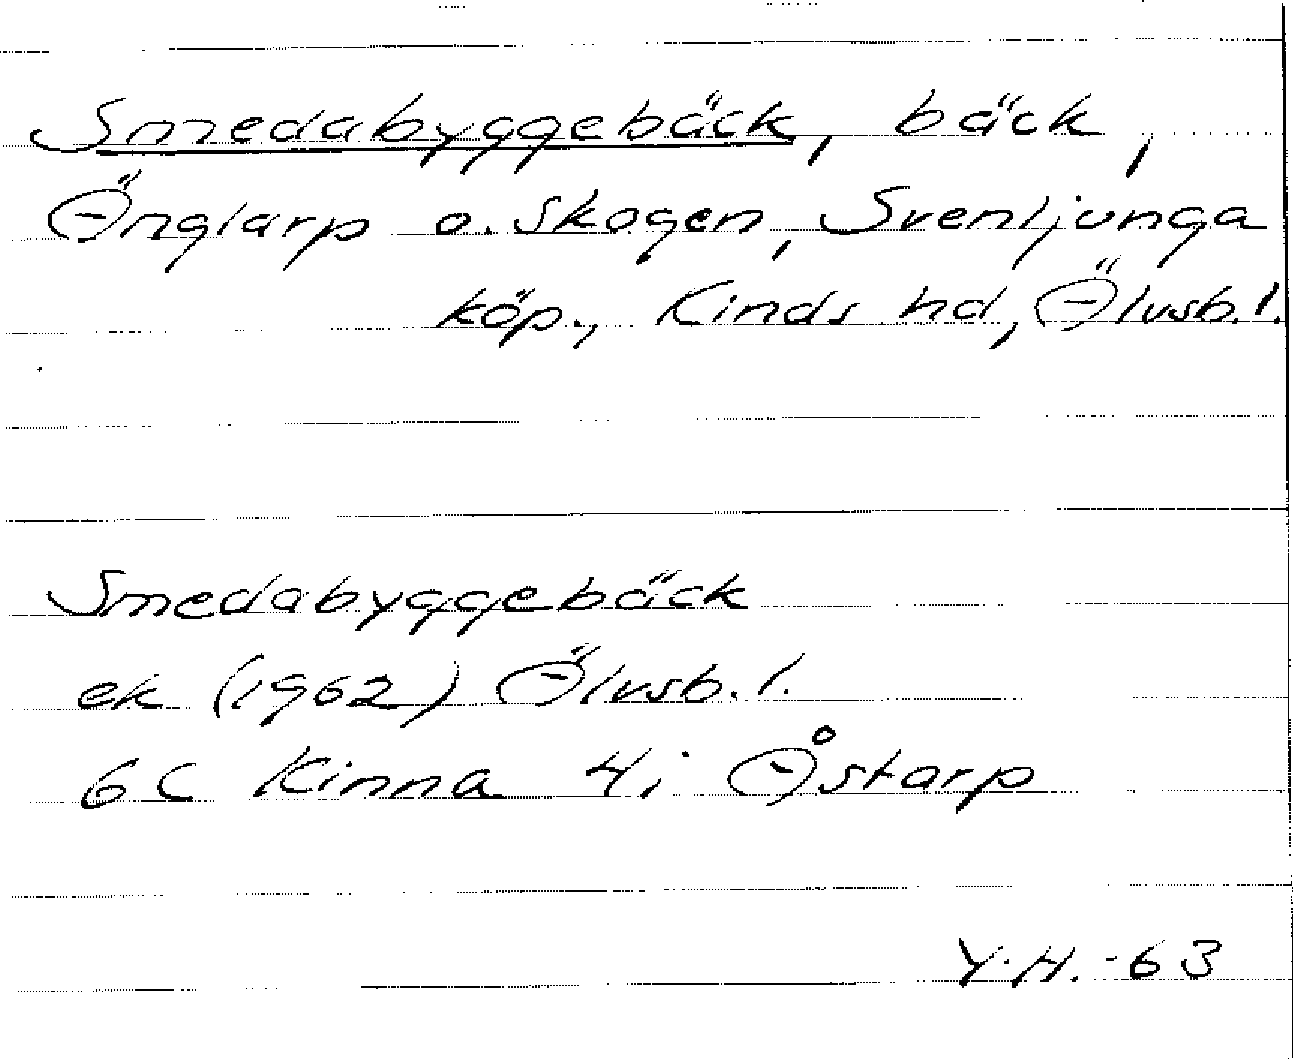 Smedabyggebäck, bäck,
Änglarp o. Skogen, Svenljunga
köp., Kinds hd, Älvsb. l.
Smedabyggebäck
ek (1962) Älvsb. l.
6C Kinna 4i Åstarp
Y.H. -63